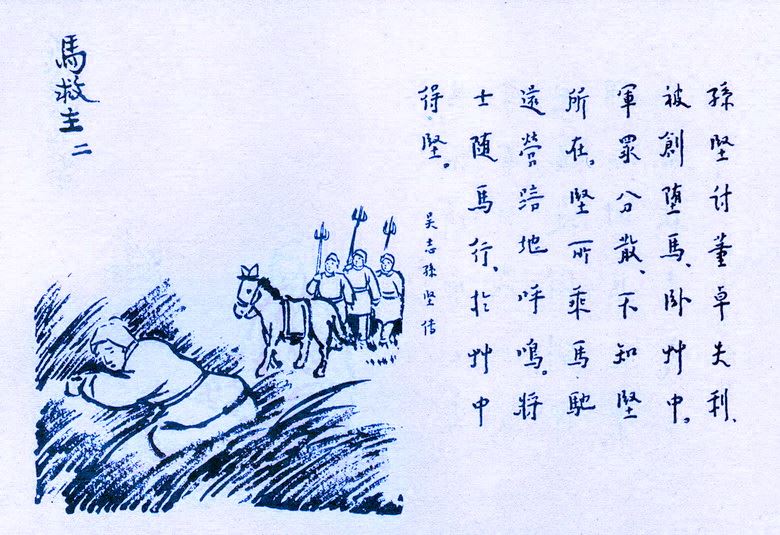 馬救主 二
孫堅討董卓失利、
被創墮馬、卧艸中。
軍眾分散、不知堅
所在。堅所乘馬馳
還營踣地呼鳴。將
士隨馬行、於艸中
得堅。
吳志孫堅傳